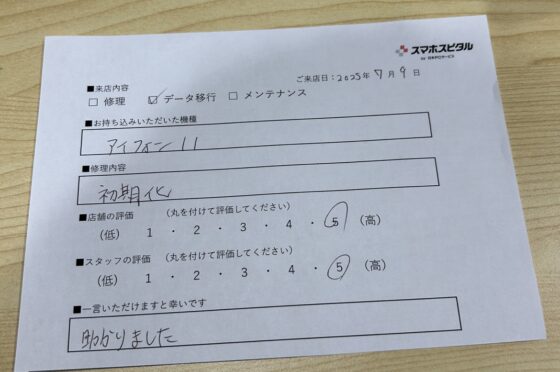 スマホスピタル
by 日本PCサービス
ご来店日：2025年 7月 9日
■来店内容
□ 修理 ☑ データ移行 □ メンテナンス
■お持ち込みいただいた機種
アイフォン 11
■修理内容
初期化
■店舗の評価 （丸を付けて評価してください）
（低） 1 ・ 2 ・ 3 ・ 4 ・ 5 （高）
■スタッフの評価 （丸を付けて評価してください）
（低） 1 ・ 2 ・ 3 ・ 4 ・ 5 （高）
■一言いただけますと幸いです
助かりました